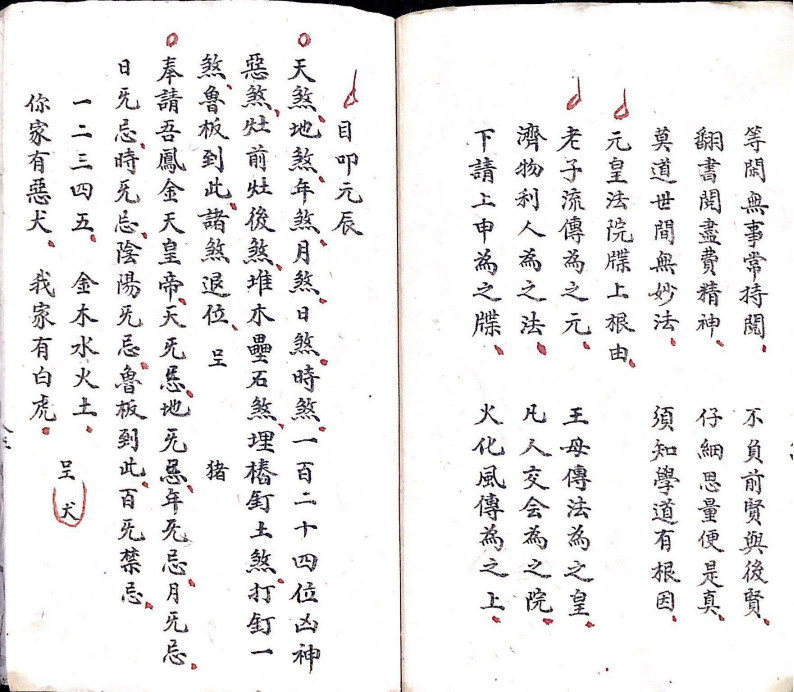 等閑無事常持閱 不負前賢與後賢
翻書閱盡費精神 仔細思量便是真
莫道世間無妙法 須知學道有根因
元皇法院牒上根由
老子流傳為之元 王母傳法為之皇
濟物利人為之法 凡人交会為之院
下請上申為之牒 火化風傳為之上
目叩元辰
天煞地煞年煞月煞日煞時煞一百二十四位凶神
惡煞灶前灶後煞堆木壘石煞埋樁釘土煞打釘一
煞魯板到此諸煞退位 呈 猪
奉請吾鳳金天皇帝天旡忌地旡忌年旡忌月旡忌
日旡忌時旡忌陰陽旡忌魯板到此百旡禁忌
一二三四五 金木水火土
你家有惡犬 我家有白虎
呈 犬